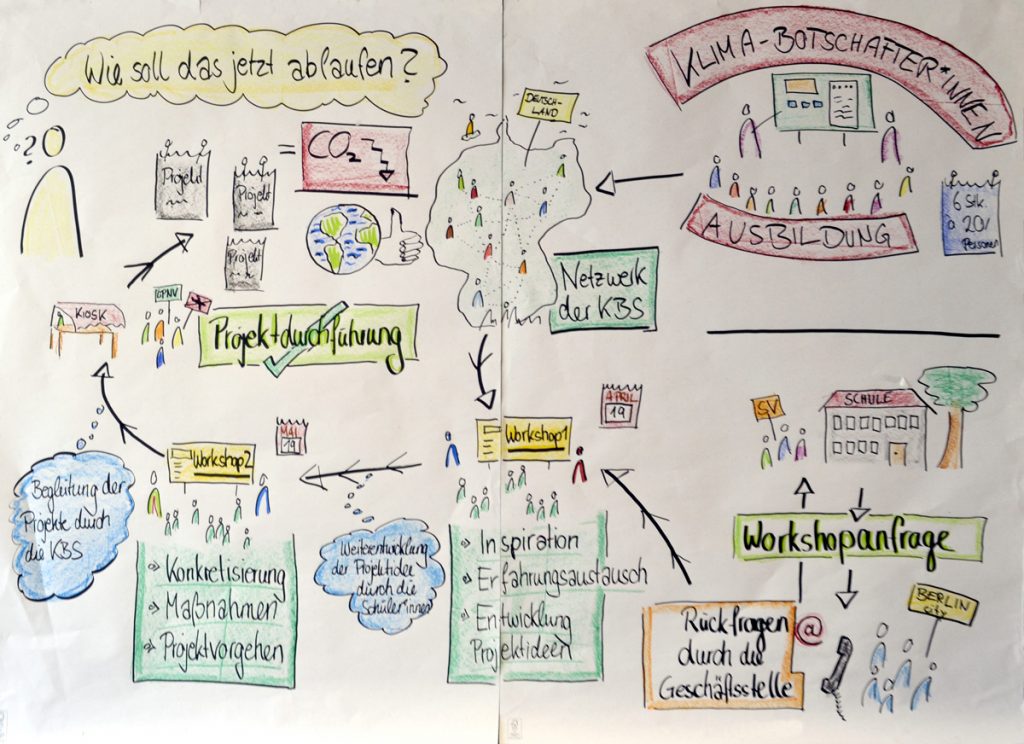 Wie soll das jetzt ablaufen?
?
Projekt
Projekt
Projekt
=
CO₂
DEUTSCH-
LAND
KLIMA-BOTSCHAFTER*INNEN
AUSBILDUNG
6 Stk.
à 20/
Personen
Netzwerk
der KBS
KIOSK
ÖPNV
Projektdurchführung
MAI
19
Workshop 2
Begleitung der
Projekte durch
die KBS
Konkretisierung
Maßnahmen
Projektvorgehen
Weiterentwicklung
der Projektidee
durch die
Schüler*innen
APRIL
19
Workshop 1
Inspiration
Erfahrungsaustausch
Entwicklung
Projektideen
SV
SCHULE
Workshopanfrage
BERLIN
city
Rückfragen
durch die
Geschäftsstelle
@